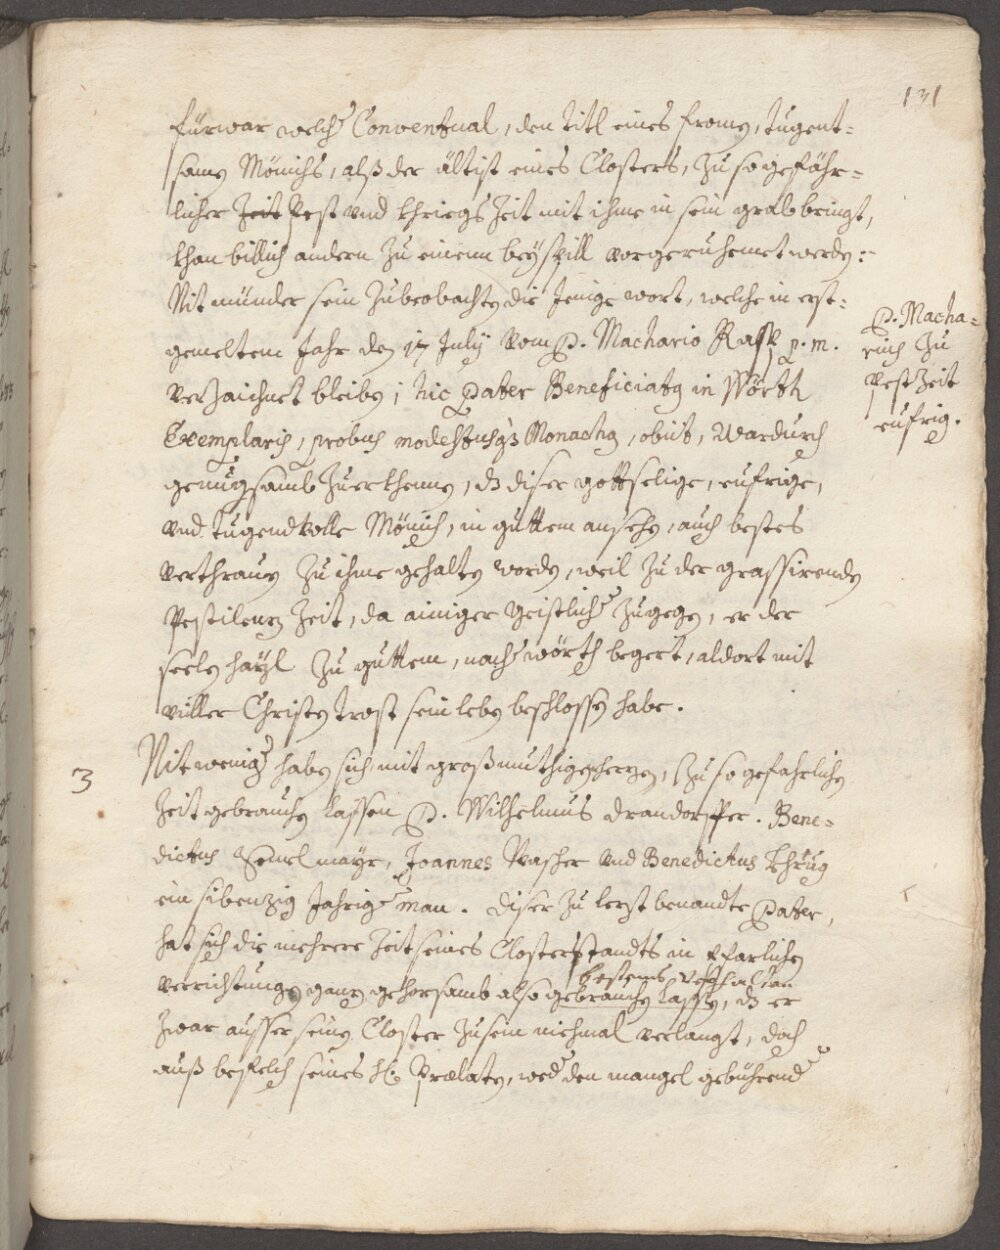 131
fürwar welcher Conventual, den titl eines fromen, tugent-
samen Mönichs, alß der ältist eines Closters, zu so gefähr-
licher Zeit Pest vnd khriegs Zeit mit ihme in sein grab bringt,
khan billich andern zu einem beyspill vorgeruhemet werden:-
Nit münder sein zubeobachten die Jenige wort, welche in erst-
gemeltem Jahr den 17 July vom P. Machario Rasp p. m.
verzaichnet bleiben; hic pater Beneficiatus in Wörth
Exemplaris, probus modestusque Monachus, obiit, Wardurch
genuegsamb zuerkhennen, dz diser gottselige, eufrige,
vnd tugendtvolle Mönich, in guttem ansehen, auch bestes
verthrauen zu ihme gehalten worden, weil zu der grassirenden
Pestilenz Zeit, da ainiger Geistlicher zugegen, er der
seelen hayl zu guttem, nacher wörth begert, aldort mit
viller Christen trost sein leben beschlossen habe.
P. Macha-
rius zu
Pest Zeit
eufrig.
3
Nit weniger haben sich mit großmuthigen herzen, zu so gefahrlichen
Zeit gebrauchen lassen P. Wilhelmus drandorffer. Bene-
dictus Semelmayr, Joannes Rascher vnd Benedictus Khrug
ein sibenzig Jahriger man. diser zu lerst benandte Pater,
hat sich die mehrere Zeit seines Closterstandts in Pfarlichen
bestens verhalten
verrichtungen ganz gehorsamb also gebrauchen lassen, dz er
zwar ausser seinen Closter zusein niehmal verlangt, doch
auß befelch seines H. Prælaten, weder den mangel gebührender